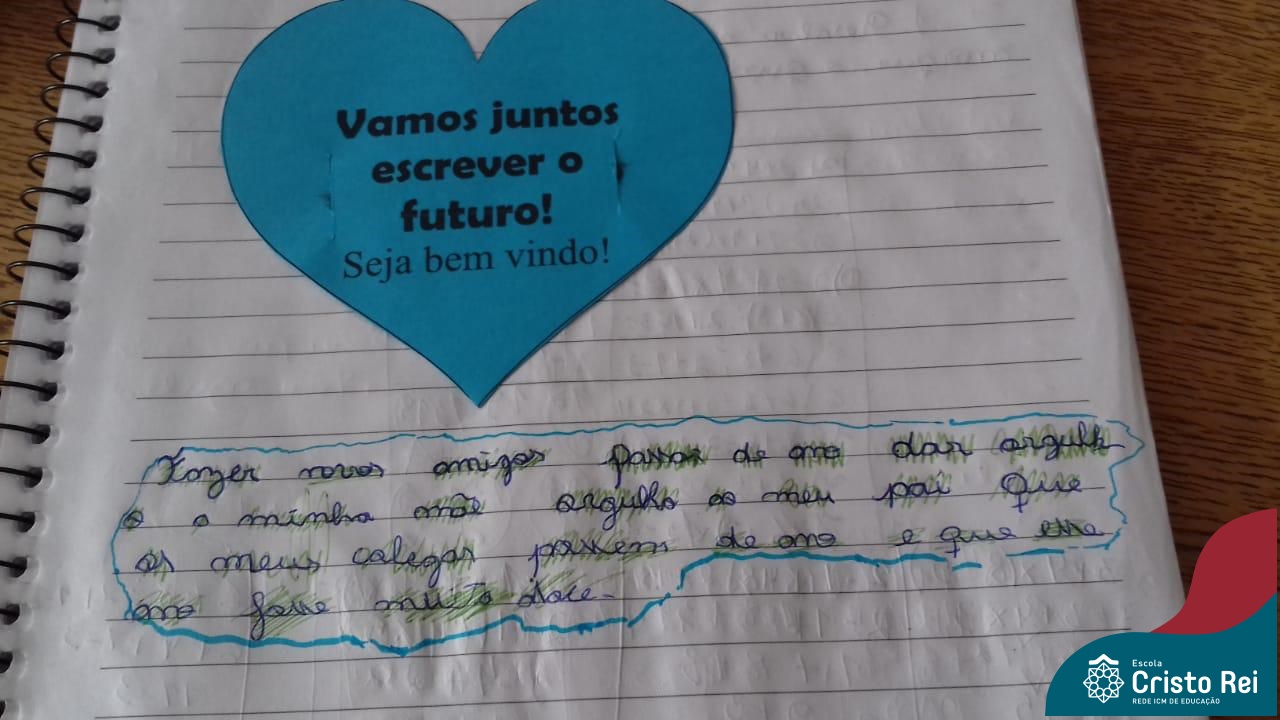 Vamos juntos
escrever o
futuro!
Seja bem vindo!
Fazer novos amigos passar de ano dar orgulh
o a minha mãe orgulho ao meu pai Que
os meus colegas passem de ano e que esse
ano fosse muito doce.
Escola
Cristo Rei
REDE ICM DE EDUCAÇÃO